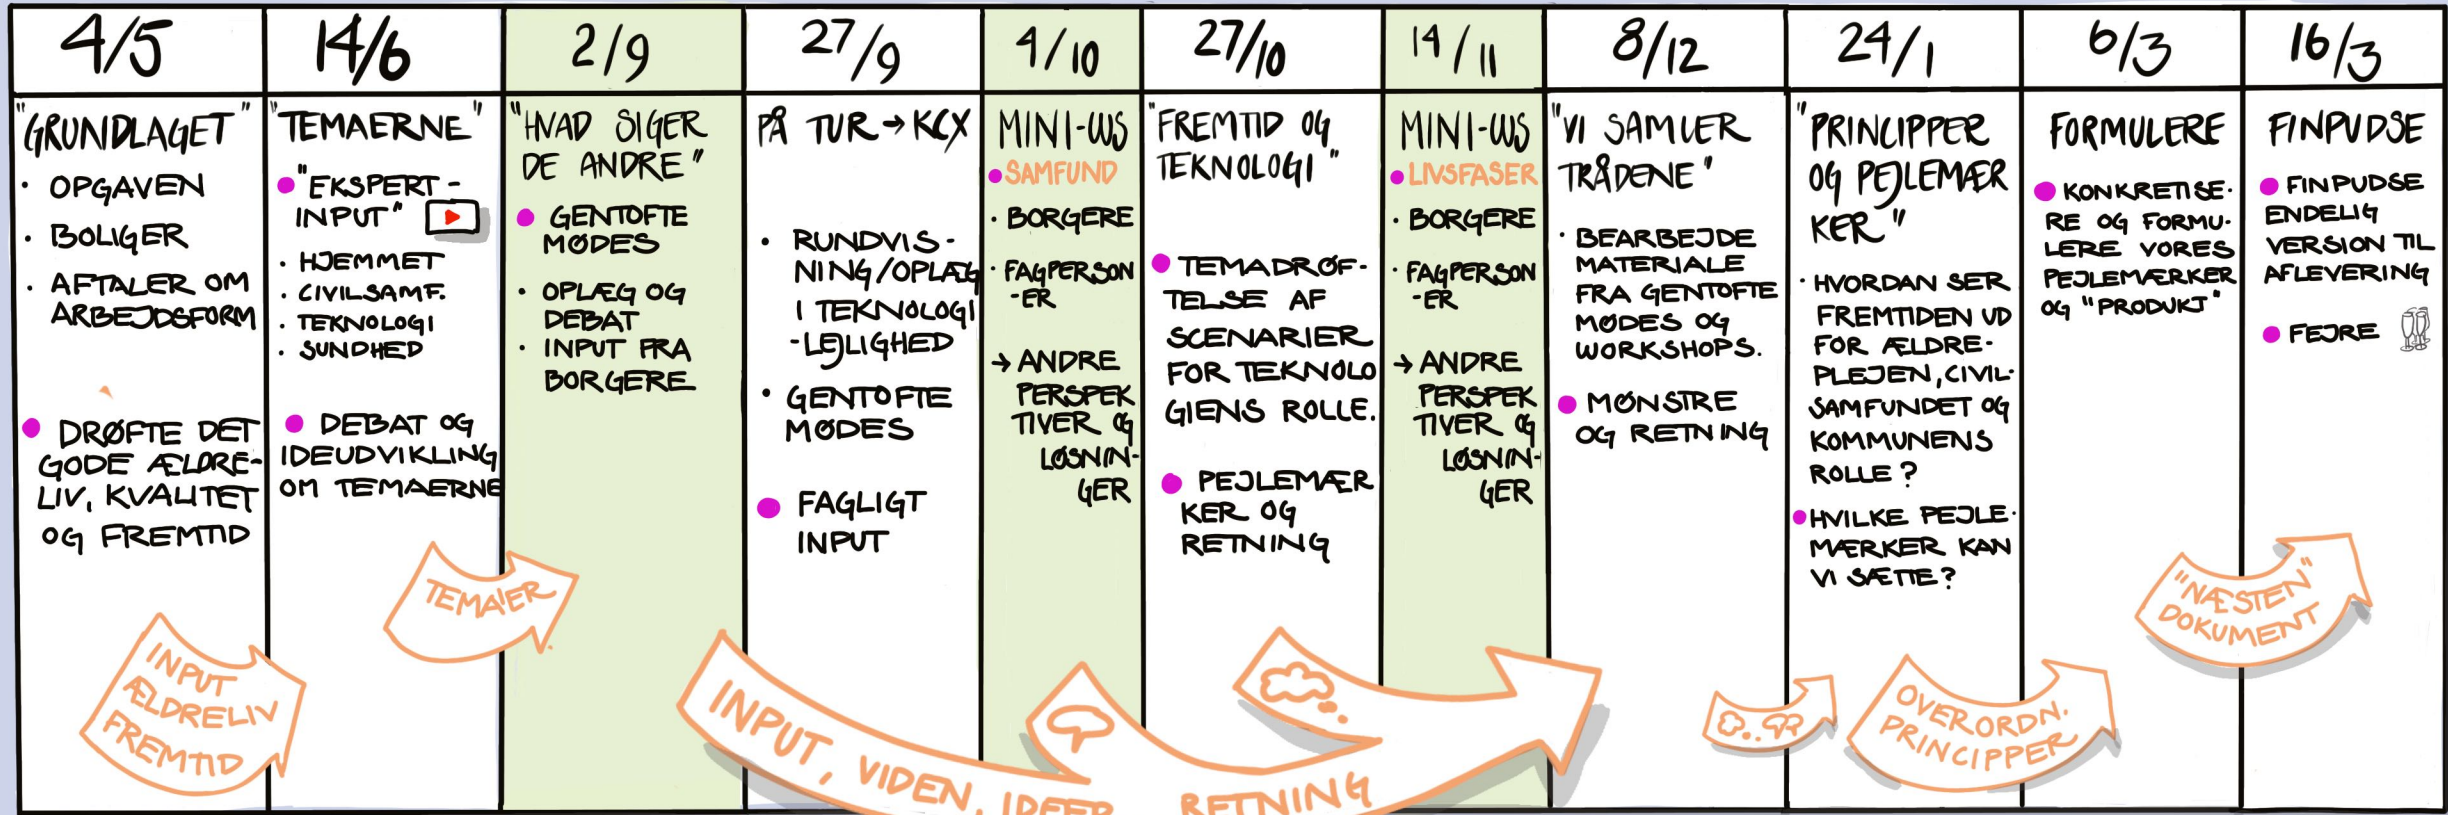 4/5
"GRUNDLAGET"
· OPGAVEN
· BOLIGER
· AFTALER OM
ARBEJDSFORM
DRØFTE DET
GODE ÆLDRE-
LIV, KVALITET
OG FREMTID
INPUT
ÆLDRELIV
FREMTID
14/6
"TEMAERNE"
"EKSPERT-
INPUT"
· HJEMMET
· CIVILSAMF.
· TEKNOLOGI
· SUNDHED
DEBAT OG
IDEUDVIKLING
OM TEMAERNE
TEMAER
2/9
"HVAD SIGER
DE ANDRE"
GENTOFTE
MØDES
· OPLÆG OG
DEBAT
· INPUT FRA
BORGERE
27/9
PÅ TUR → KCX
· RUNDVIS-
NING/OPLÆG
I TEKNOLOGI
-LEJLIGHED
· GENTOFTE
MØDES
FAGLIGT
INPUT
INPUT, VIDEN, IDEER
4/10
MINI-WS
SAMFUND
· BORGERE
· FAGPERSON
-ER
→ ANDRE
PERSPEK
TIVER OG
LØSNIN-
GER
27/10
"FREMTID OG
TEKNOLOGI"
TEMADRØF-
TELSE AF
SCENARIER
FOR TEKNOLO
GIENS ROLLE.
PEJLEMÆR
KER OG
RETNING
RETNING
14/11
MINI-WS
LIVSFASER
· BORGERE
· FAGPERSON
-ER
→ ANDRE
PERSPEK
TIVER OG
LØSNIN-
GER
8/12
"VI SAMLER
TRÅDENE"
· BEARBEJDE
MATERIALE
FRA GENTOFTE
MØDES OG
WORKSHOPS.
MØNSTRE
OG RETNING
24/1
"PRINCIPPER
OG PEJLEMÆR
KER"
· HVORDAN SER
FREMTIDEN UD
FOR ÆLDRE-
PLEJEN, CIVIL-
SAMFUNDET OG
KOMMUNENS
ROLLE?
HVILKE PEJLE-
MÆRKER KAN
VI SÆTTE?
OVERORDN.
PRINCIPPER
6/3
FORMULERE
KONKRETISE-
RE OG FORMU-
LERE VORES
PEJLEMÆRKER
OG "PRODUKT"
"NÆSTEN"
DOKUMENT
16/3
FINPUDSE
FINPUDSE
ENDELIG
VERSION TIL
AFLEVERING
FEJRE